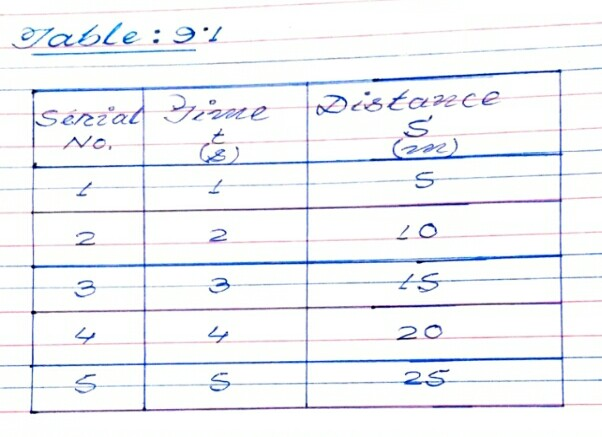 Table: 9.1
Serial No. Time t (s) Distance S (m)
1 1 5
2 2 10
3 3 15
4 4 20
5 5 25